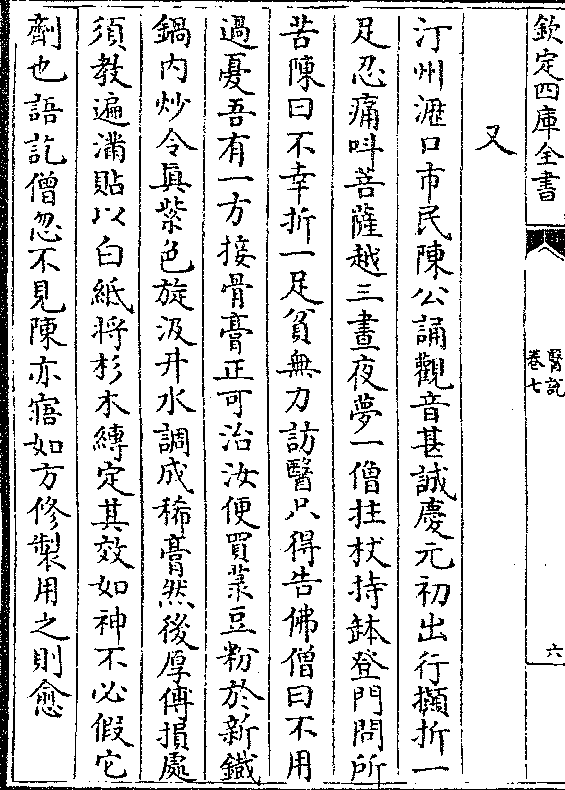 欽定四庫全書
醫説
卷七
六
又
汀州瀝口市民陳公誦觀音甚誠慶元初出行攧折一
足忍痛呌菩薩越三晝夜夢一僧拄杖持鉢登門問所
苦陳曰不幸折一足貧無力訪醫只得告佛僧曰不用
過憂吾有一方接骨膏正可治汝便買菉豆粉於新鐵
鍋内炒令真紫色旋汲井水調成稀膏然後厚傅損處
須教遍滿貼以白紙將杉木縳定其效如神不必假它
劑也語訖僧忽不見陳亦寤如方修製用之則愈